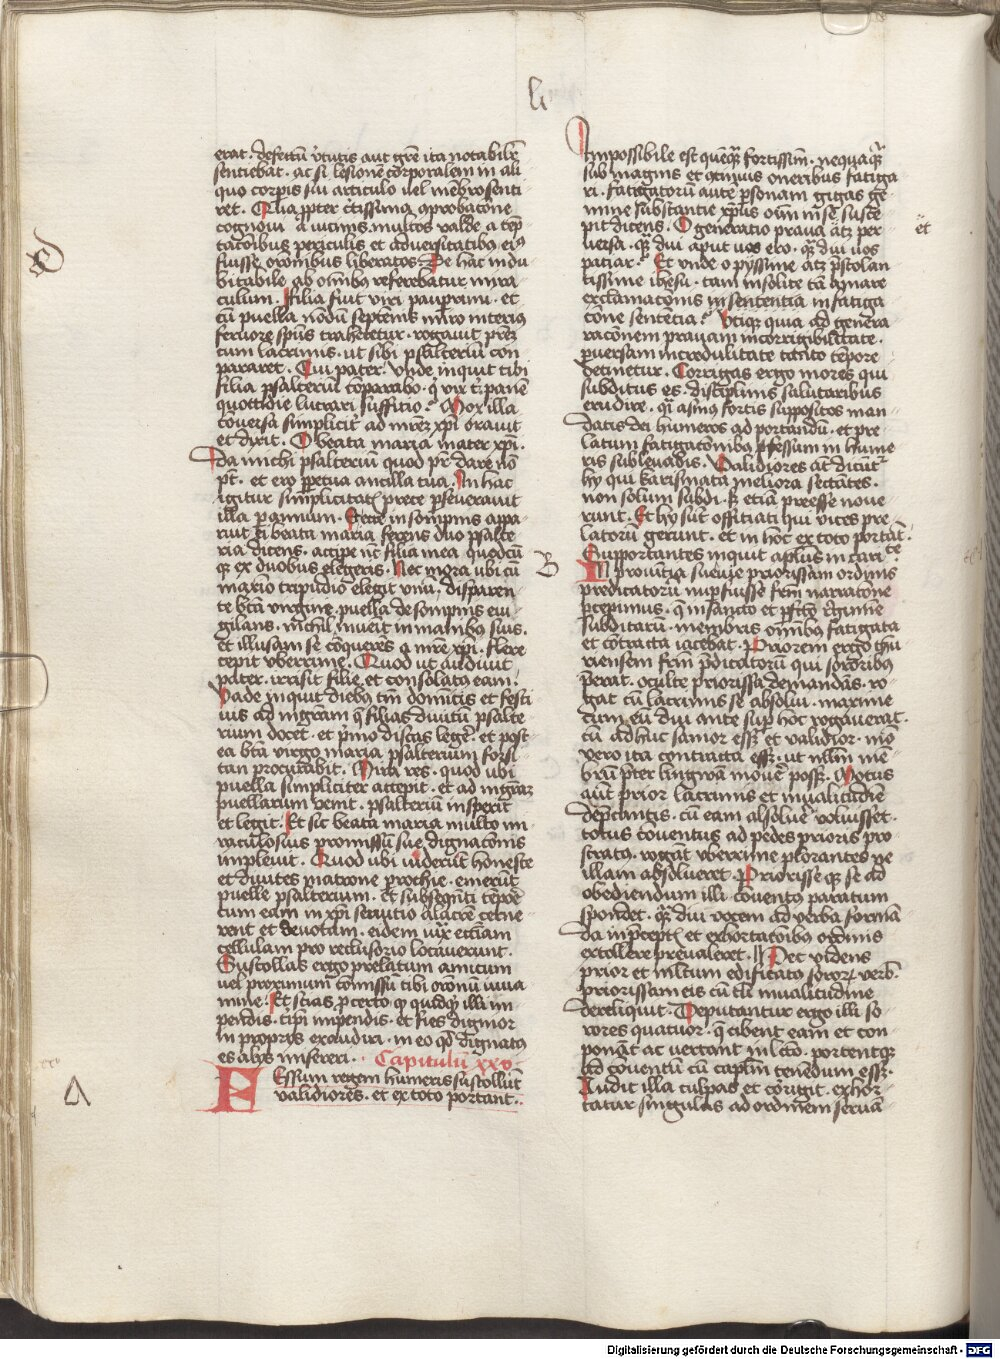 li
erat. defectū v̄tutis aut grē ita notabilē
sentiebat. ac si lesionē corporalem in ali
quo corpis sui articulo uel mēbro senti
ret. Alia ꝓpter c̄tissima ꝯprobatōne
cognoui a iucūis multos valde a tēp
tacōibus periculis et aduersitatibꝯ eiꝯ
fuisse orōnibus liberatos. De hac indu
bitabile ab omībꝯ referebatur mira
culum. Filia fuit viri paupīmi. et
cū puella nōdū septēnis miro interiꝯ
feruore spūs traheretur. rogauit pr̄ez
cum lacrimis. ut sibi psalteriū con
pararet. Cui pater. Unde inquit tibi
filia psalteriū cōparabo. qͥ vix tͥ panē
quottidie lucrari sufficio? Mox illa
cōuersa simplicit̓ ad mr̄ez xp̄i orauit
et dixit. O beata maria mater xp̄i.
da michi psalteriū quod pr̄ dare nō
pt̄. et ero ꝑpetua ancilla tua. In hac
igitur simplicitat̄ prece ꝑseuerauit
illa ꝑ annum. Ecce in sompnis appa
ruit ei beata maria ferens duo psalte
ria dicens. accipe nc̄ filia mea quodcū
qꝫ ex duobus elegeris. Nec mora ubi cū
maxīo tripudio elegit vnū. disparen
te btā virgine. puella de sompnis eui
gilans. nichil inuenit in manibꝯ suis.
et illusam se cōquerēs a mr̄e xp̄i. flere
cepit vberrime. Quod ut audiuit
pater. irrisit filie et consolatꝯ eam.
Vade inquit diebꝯ tm̄ domīcis et festi
uis ad mgram q̄ filias diuitū psalte
rium docet. et pͥmo discas leger̄. et post
ea btā virgo maria psalterium forsi
tan procurabit. Mira res. quod ubi
puella simpliciter accepit. et ad mgraz
puellarum venit. psalteriū inspexit
et legit. Et sic beata maria multo mi
raculosius promissū sue dignacōnis
impleuit. Quod ubi uiderūt honeste
et diuites matrone ꝑrochie. emerūt
puelle psalterium. Et subseqnti tēpor̄e
cum eam in xp̄i seruitio alacrē cerne
rent et deuotam. eidem iux ecc̄iam
cellulam pro reclusorio locauerunt.
Sustollas ergo prelatum amicum
uel proximum cōmissū tibi orōnū uiua
mine. Et scias ꝓ certo qͥ quidqͥd illi im
pendis. tipͥi impendis. et fies dignior
in propriis exaudiri. in eo qd̄ dignatꝯ
es aliis misereri. Capitulū xxv
Fessum regem humeris sustollūt
validiores. et ex toto portant.
Impossibile est quēqꝫ fortissim̄. nequaqꝫ
sub magnis et ꝯtinuis oneribus fatiga
ri. fatigatorū autē ꝑsonam gigas ge
mine substantie xp̄us oīm in se susce
pit dicens. O generatio praua atqꝫ per
uersa. qͣdiu aput uos ero. qͣdiu uos
patiar. Et unde o pijssime atqꝫ p̄stolan
tissime ihesu. tam insolite tā amare
exclamacōnis in sententia in fatiga
cōne sentētia? Utiqꝫ quia ad genera
racōnem prauam incorrigibilitate.
ꝑuersam incredulitate tātato tēpore
detinetur. Corrigas ergo mores qui
subditus es. disciplinis salutaribus
erudire. qͥ asinꝯ fortis suppositos man
datis dei humeros ad portandū. et pre
latum fatigatōnibꝯ ꝓfessum in hume
ris subleuabis. Validiores aūt dicūtͬ
hij qui karismata meliora sectātes.
non solum subdi. sꝫ etiā preesse noue
runt. Et hij sūt offitiati qui vices pre
latorū gerunt. et in hoc ex toto portāt.
Supportantes inquit aplus in carite
In prouītia sueuie priorissam ordinis
predicatorū nuꝑ fuisse frm̄ narratōne
ꝑcepimus. q̄ in sancto et ꝑfc̄o regimīe
subditarū. membris omībꝯ fatigata
et cōtracta iacebat. Priorem ergo thu
riensem frm̄ p̄dicatorū qui sororibus
p̄erat. oculte priorissa demandās. ro
gat cū lacrimis se absolui. maxime
cum eū diu ante sup̄ hoc rogauerat.
cū adhuc sanior esset et validior. mō
vero ita contracta ess̄. ut nllm̄ mē
brū p̄ter lingwā mouē possꝫ. Motus
aūt prior lacrimis et inualitudīe
dep̄cantis. cū eam absoluē voluisset.
totus cōuentus ad pedes prioris pro
stratꝯ. rogāt vberrime plorantes ne
illam absolueret. Priorisse qꝫ se ad
obediendum illi. cōuento paratum
spondet. qͣdiu vocem ad verba formā
da in p̄cept̄ et exhortatōnibꝯ ordinis
extollere preualeret. Nec uidens
prior et mltum edificato sororꝝ verb̄.
priorissam eis cū tli inualitudine
dereliquit. Deputantur ergo illi so
rores quatuor. q̄ cibent eam et con
ponāt ac vertant in lc̄o. portentqꝫ
ad cōuentū cū caplm̄ tenēdum essꝫ.
Audit illa culpas et corrigit. exhor
tatur singulas ad ordinem seruā
et
A
B